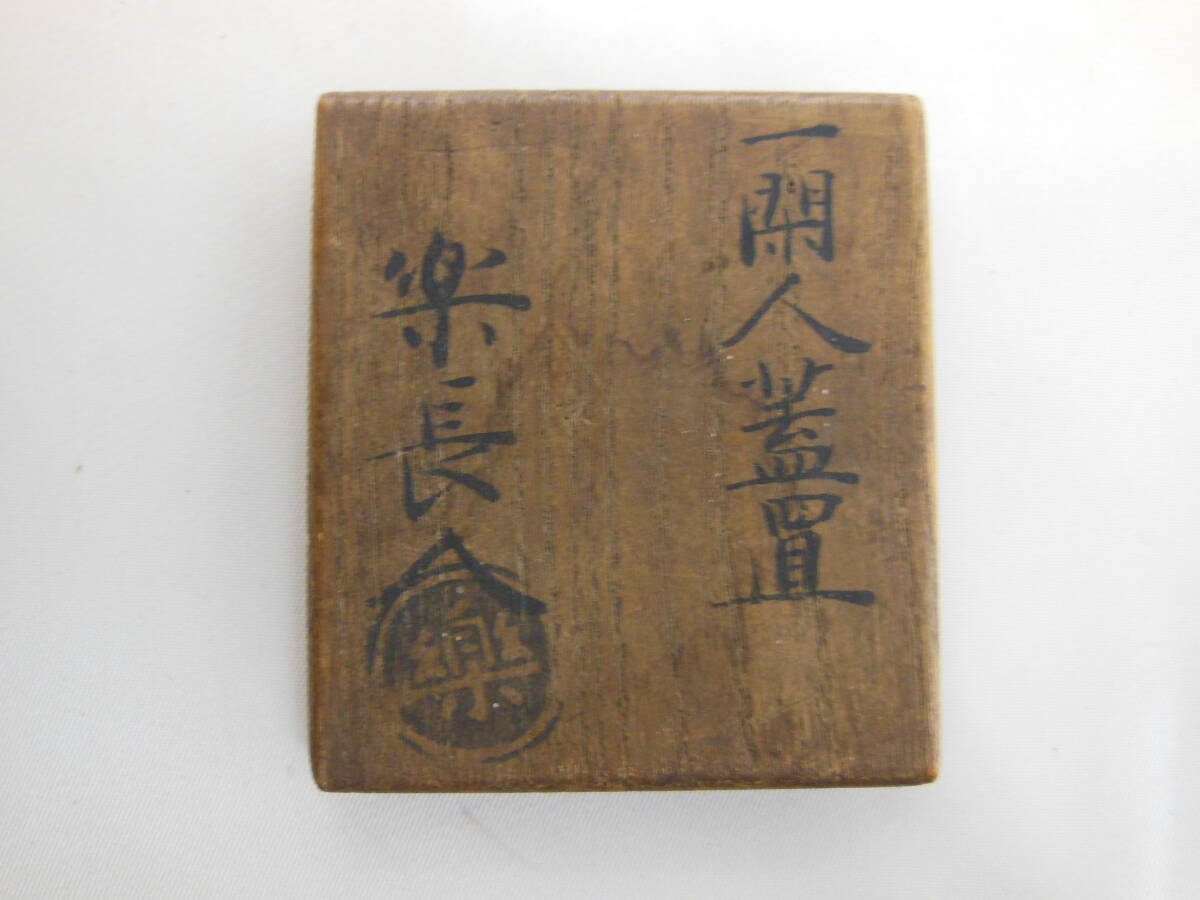 一閑人蓋置
楽長入
樂